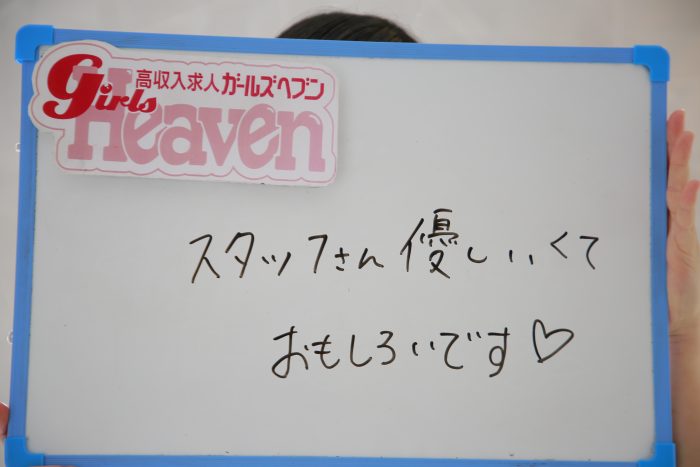 高収入求人ガールズヘブン
Girls
Heaven
スタッフさん優しいくて
おもしろいです♡